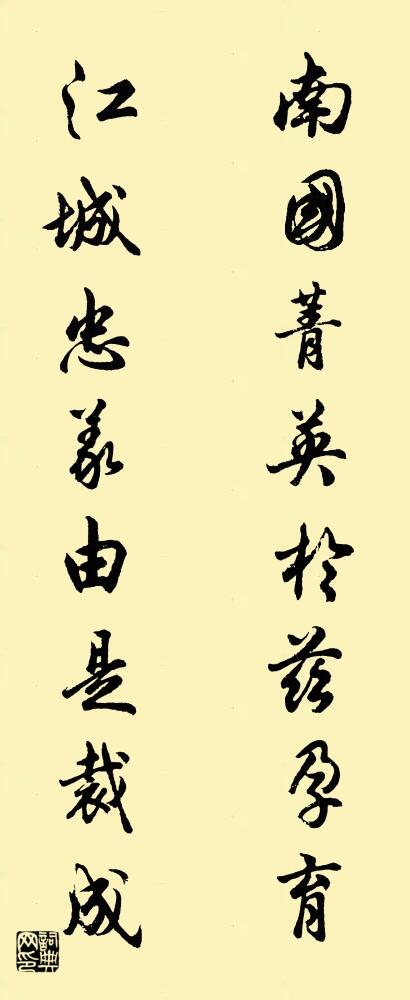 南國菁英於茲孕育
江城忠義由是裁成
詞典网印